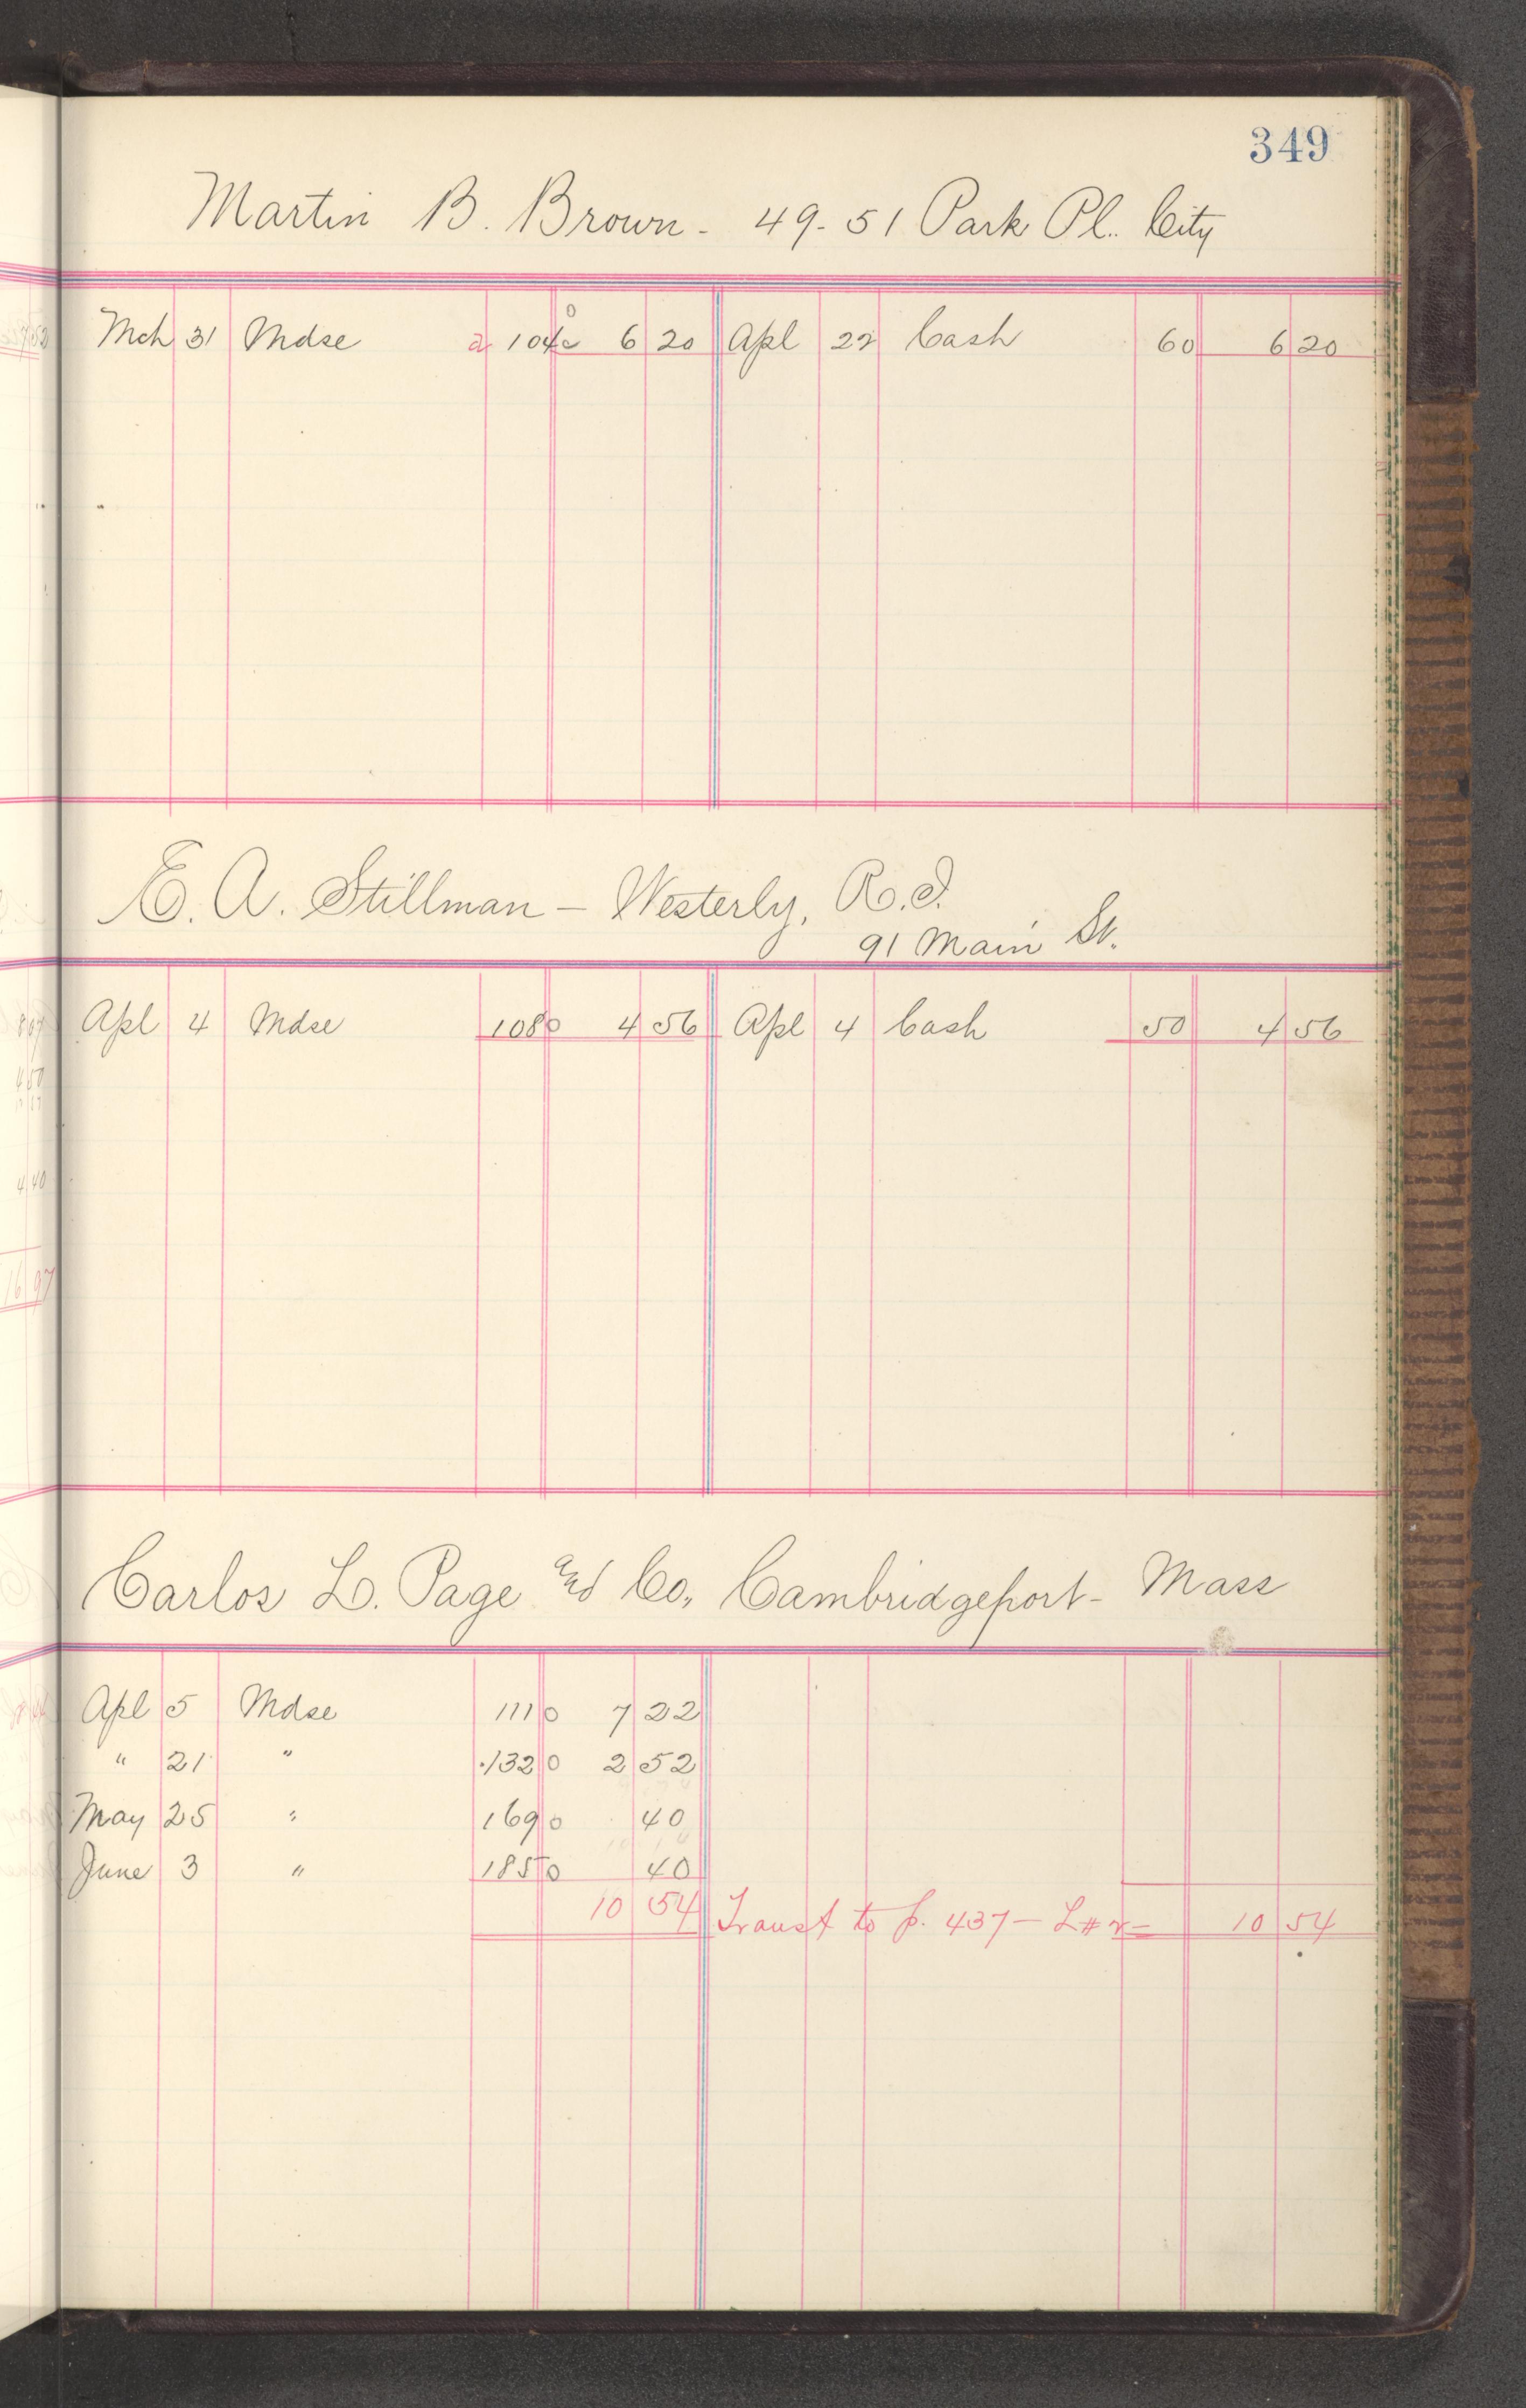 349
Martin B. Brown - 49-51 Park Pl. City
Mch 31 Mdse 104 6 20 Apl 22 Cash 60 6 20
E. A. Stillman - Westerly, R.I.
91 Main St.
Apl 4 Mdse 1080 4 56 Apl 4 Cash 50 4 56
Carlos L. Page and Co. Cambridgeport - Mass
Apl 5 Mdse 1110 7 22
" 21 " 1320 2 52
May 25 " 1690 40
June 3 " 1850 40
10 54 Transf to p. 437 - L#2 = 10 54